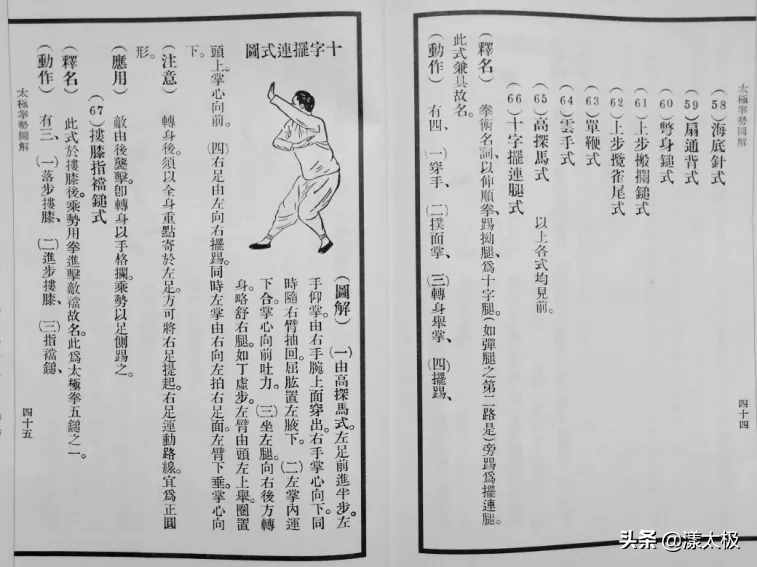 太極拳勢圖解
(58)海底針式
(59)扇通背式
(60)彆身鎚式
(61)上步搬攔鎚式
(62)上步攬雀尾式
(63)單鞭式
(64)雲手式
(65)高探馬式 以上各式均見前。
(66)十字擺連腿式
(釋名) 拳術名詞、以伸順拳、踢拗腿、爲十字腿(如彈腿之第二路是)旁踢爲擺連腿。
此式兼具故名。
(動作) 有四、㈠穿手、㈡撲面掌、㈢轉身舉掌、㈣擺踢、
四十四
十字擺連式圖
(圖解) ㈠由高探馬式。左足前進半步。左
手仰掌。由右手腕上面穿出。右手掌心向下。同
時隨右臂抽回。屈肱置左腋下。㈡左掌內運
下合。掌心向前吐力。㈢坐左腿。向右後方轉
身。略舒右腿。如丁虛步。左臂由頭左上舉。圈置
頭上。掌心向前。㈣右足由左向右擺踢。同時左掌由右向左拍右足面。左臂下垂。掌心向
下。
(注意) 轉身後。須以全身重點寄於左足。方可將右足提起。右足運動路線。宜爲正圓
形。
(應用) 敵由後襲擊。卽轉身以手格攔。乘勢以足側踢之。
(67)摟膝指襠鎚式
(釋名) 此式於摟膝後。乘勢用拳進擊敵襠。故名。此爲太極拳五鎚之一。
(動作) 有三、㈠落步摟膝、㈡進步摟膝、㈢指襠鎚、
太極拳勢圖解
四十五
头条 @漾太极